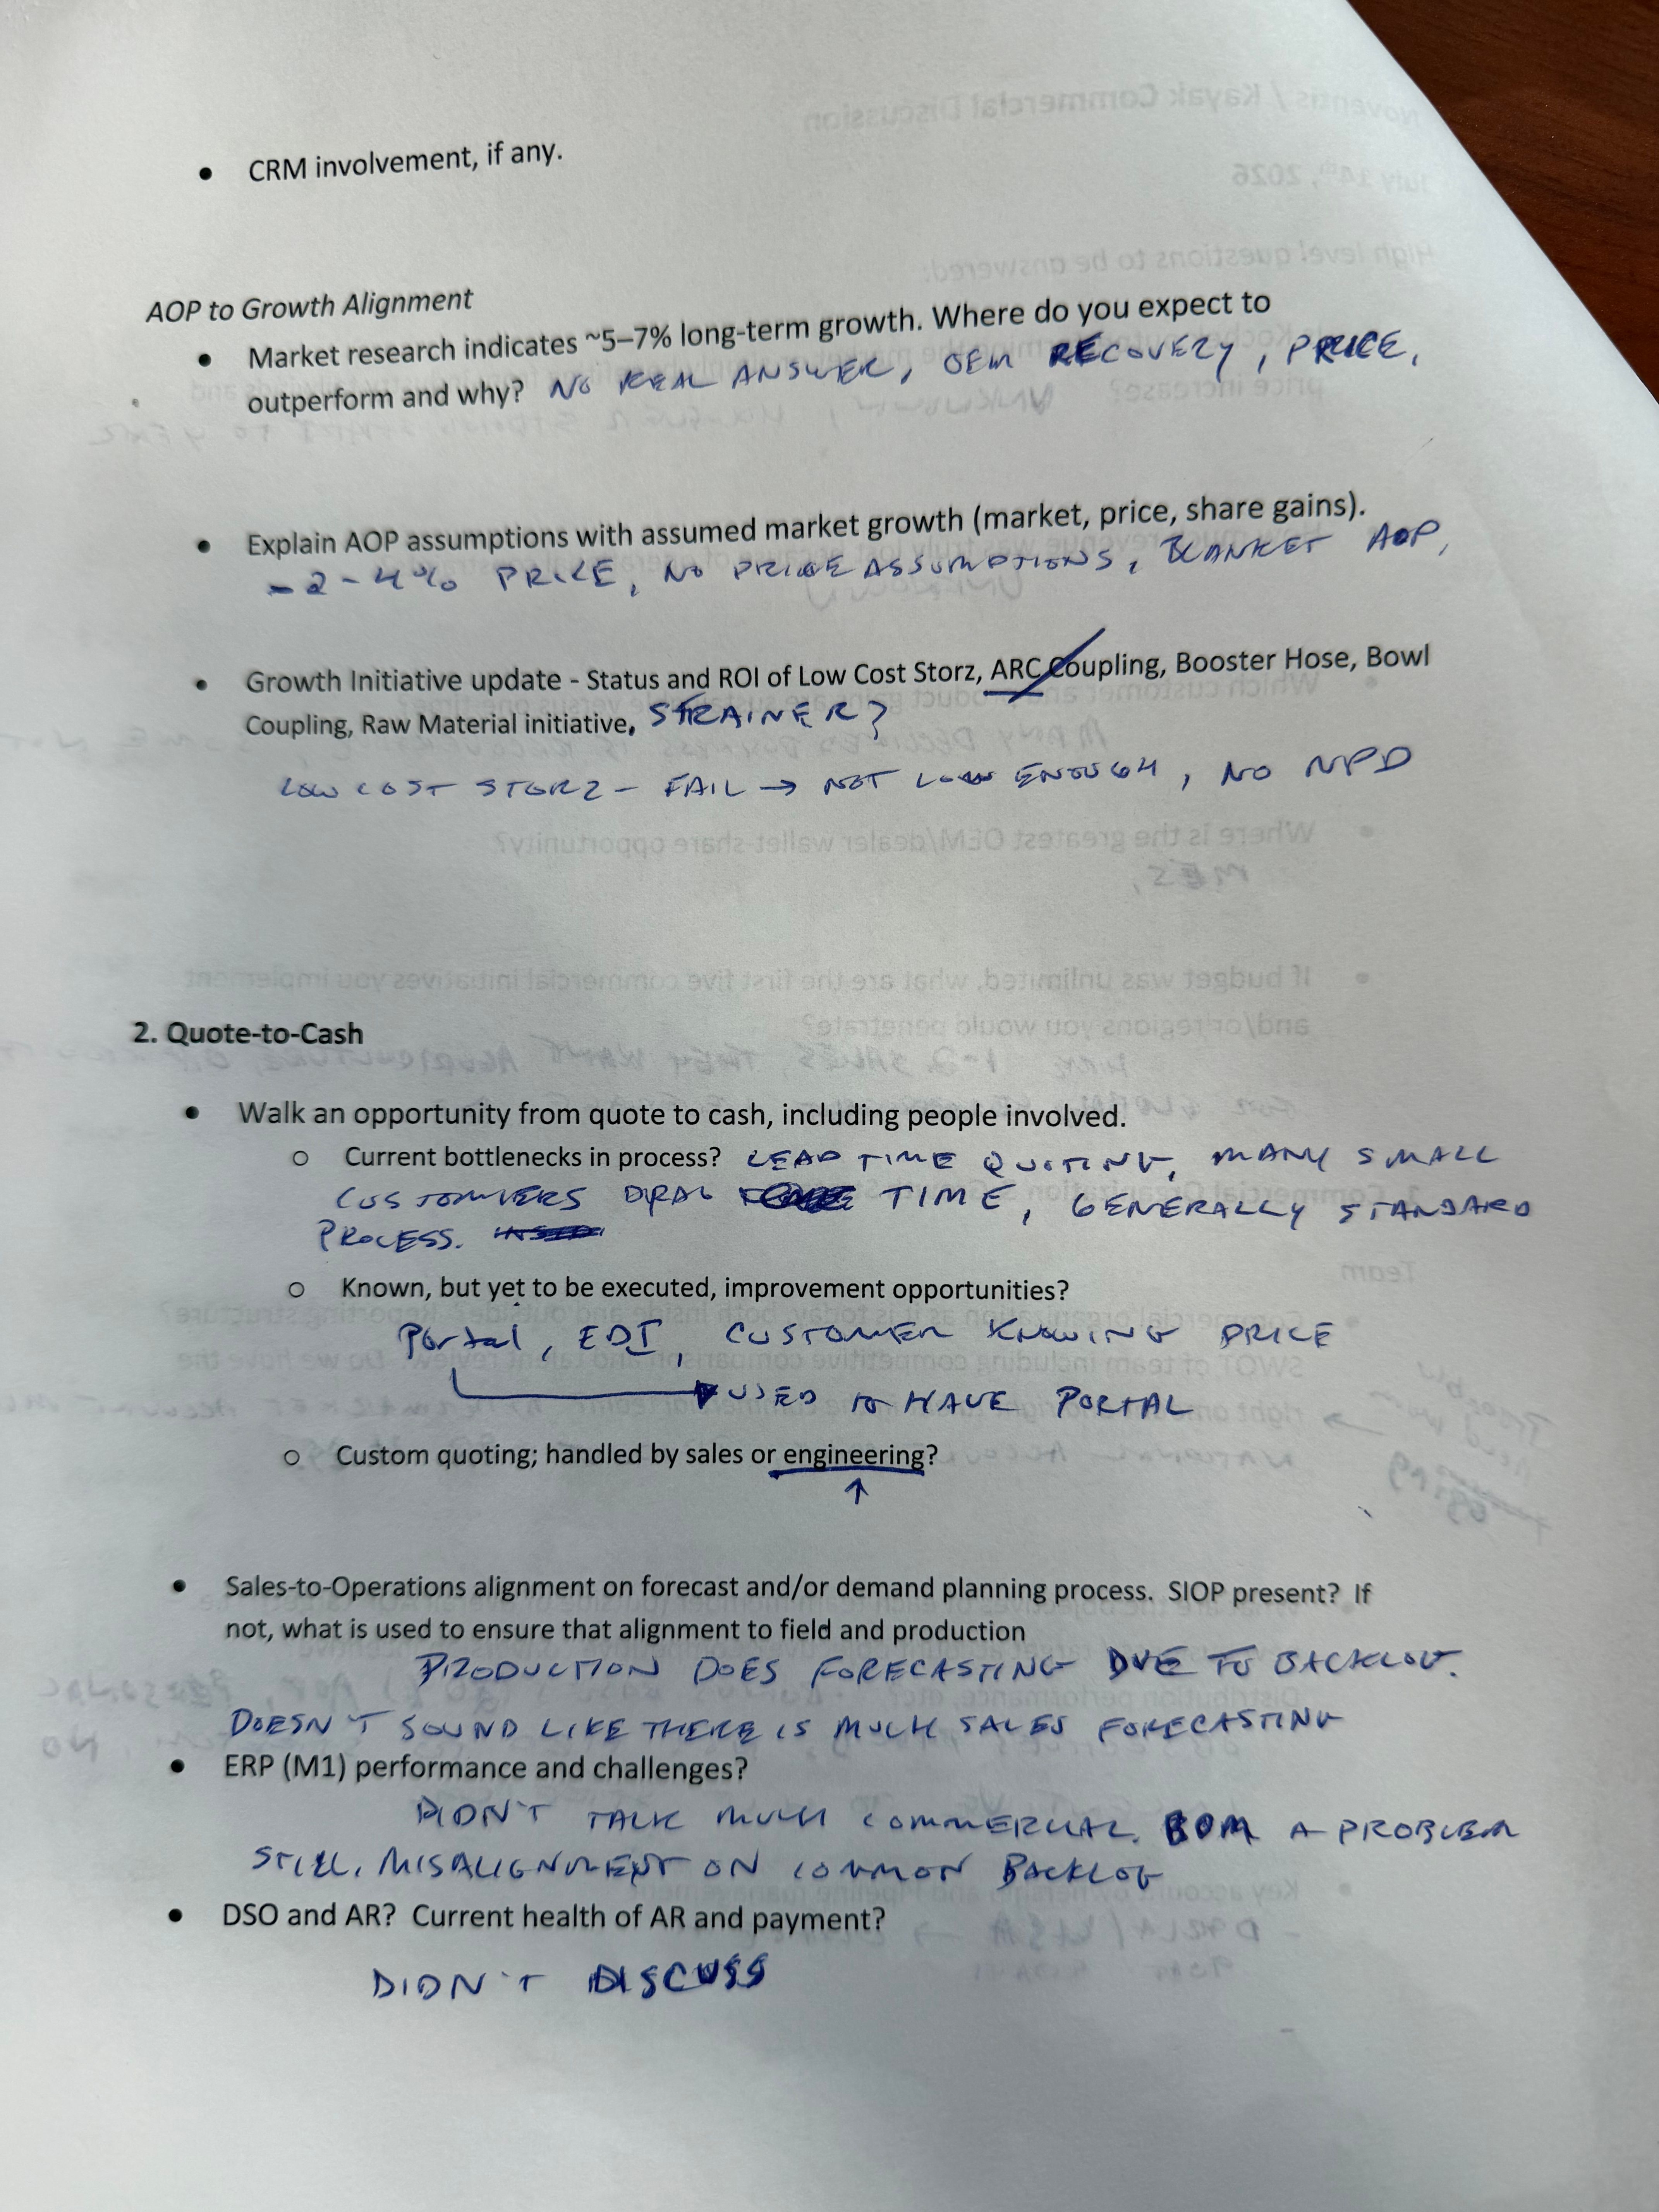 • CRM involvement, if any.
AOP to Growth Alignment
• Market research indicates ~5–7% long-term growth. Where do you expect to
outperform and why? NO REAL ANSWER, OEM RECOVERY, PRICE,
• Explain AOP assumptions with assumed market growth (market, price, share gains).
- 2-4% PRICE, NO PRICE ASSUMPTIONS, BLANKET AOP,
• Growth Initiative update - Status and ROI of Low Cost Storz, ARC Coupling, Booster Hose, Bowl
Coupling, Raw Material initiative, STRAINER?
LOW COST STORZ - FAIL → NOT LOW ENOUGH, NO NPD
2. Quote-to-Cash
• Walk an opportunity from quote to cash, including people involved.
○ Current bottlenecks in process? LEAD TIME QUOTING, MANY SMALL
CUSTOMERS TIME, GENERALLY STANDARD
PROCESS.
○ Known, but yet to be executed, improvement opportunities?
Portal, EDI, CUSTOMER KNOWING PRICE
USED TO HAVE PORTAL
○ Custom quoting; handled by sales or engineering?
↑
• Sales-to-Operations alignment on forecast and/or demand planning process. SIOP present? If
not, what is used to ensure that alignment to field and production
PRODUCTION DOES FORECASTING DUE TO BACKLOG.
DOESN'T SOUND LIKE THERE IS MUCH SALES FORECASTING
• ERP (M1) performance and challenges?
DIDN'T TALK MUCH COMMERCIAL. BOM A PROBLEM
STILL. MISALIGNMENT ON COMMON BACKLOG
• DSO and AR? Current health of AR and payment?
DIDN'T DISCUSS